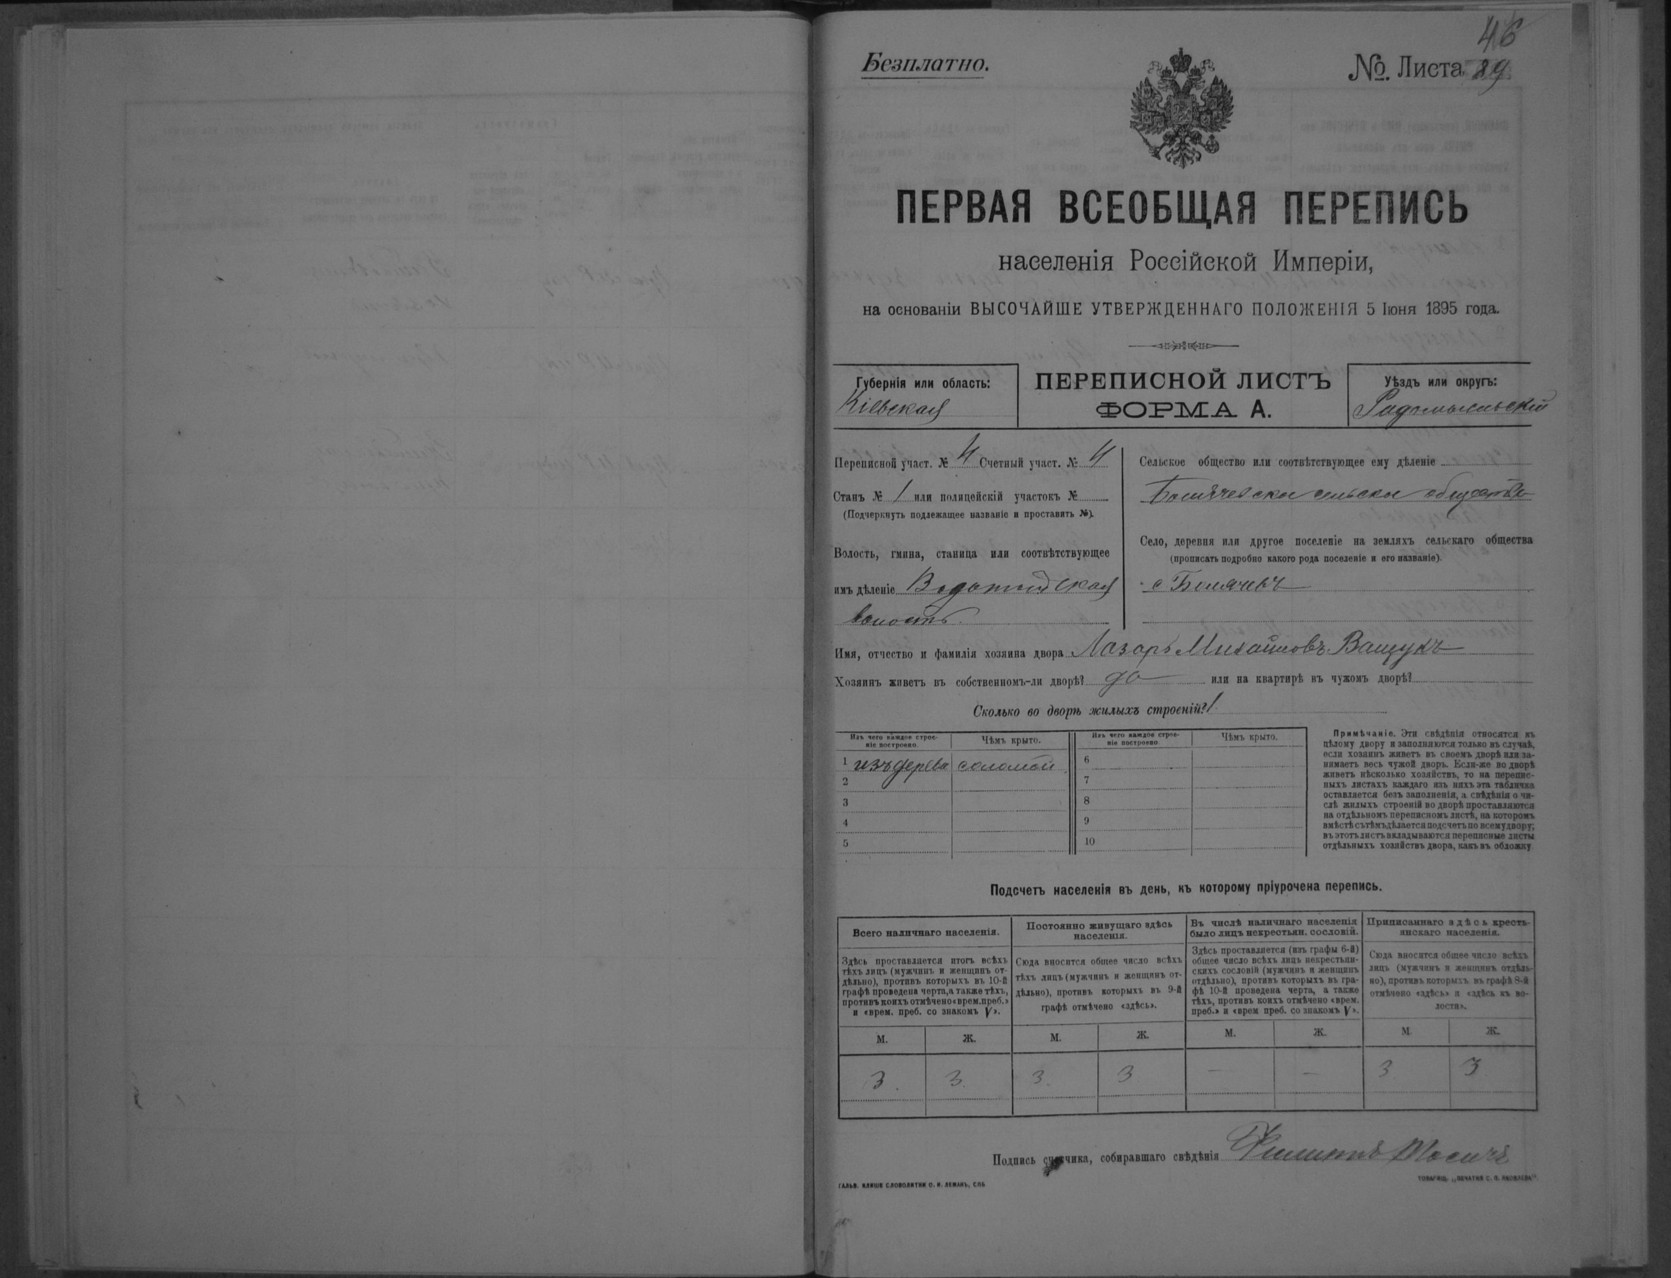 Безплатно.
46
№. Листа 39
ПЕРВАЯ ВСЕОБЩАЯ ПЕРЕПИСЬ
населенія Россійской Имперіи,
на основаніи ВЫСОЧАЙШЕ УТВЕРЖДЕННАГО ПОЛОЖЕНІЯ 5 Іюня 1895 года.
Губернія или область:
Кіевская
ПЕРЕПИСНОЙ ЛИСТЪ
ФОРМА А.
Уѣздъ или округъ:
Радомысльскій
Переписной участ. № 4 Счетный участ. № 4
Станъ № 1 или полицейскій участокъ №
(Подчеркнуть подлежащее названіе и проставить №).
Волость, гмина, станица или соотвѣтствующее
имъ дѣленіе Водотыйская
волость
Сельское общество или соотвѣтствующее ему дѣленіе
сельское общество
Село, деревня или другое поселеніе на земляхъ сельскаго общества
(прописать подробно какого рода поселеніе и его названіе).
с
Имя, отчество и фамилія хозяина двора Лазарь Михайловъ Ващукъ
Хозяинъ живетъ въ собственномъ-ли дворѣ? да или на квартирѣ въ чужомъ дворѣ?
Сколько во дворѣ жилыхъ строеній? 1
Изъ чего каждое строе-
ніе построено.
Чѣмъ крыто.
Изъ чего каждое строе-
ніе построено.
Чѣмъ крыто.
1 изъ дерева соломой
2
3
4
5
6
7
8
9
10
Примѣчаніе. Эти свѣдѣнія относятся къ
цѣлому двору и заполняются только въ случаѣ,
если хозяинъ живетъ въ своемъ дворѣ или за-
нимаетъ весь чужой дворъ. Если-же во дворѣ
живетъ нѣсколько хозяйствъ, то на перепис-
ныхъ листахъ каждаго изъ нихъ эта табличка
оставляется безъ заполненія, а свѣдѣнія о чи-
слѣ жилыхъ строеній во дворѣ проставляются
на отдѣльномъ переписномъ листѣ, на которомъ
вмѣстѣ съ тѣмъ дѣлается подсчетъ по всему двору;
въ этотъ листъ вкладываются переписные листы
отдѣльныхъ хозяйствъ двора, какъ въ обложку.
Подсчетъ населенія въ день, къ которому пріурочена перепись.
Всего наличнаго населенія.
Здѣсь проставляется итогъ всѣхъ
тѣхъ лицъ (мужчинъ и женщинъ от-
дѣльно), противъ которыхъ въ 10-й
графѣ проведена черта, а также тѣхъ,
противъ коихъ отмѣчено «врем. преб.»
и «врем. преб. со знакомъ V».
Постоянно живущаго здѣсь
населенія.
Сюда вносится общее число всѣхъ
тѣхъ лицъ (мужчинъ и женщинъ от-
дѣльно), противъ которыхъ въ 9-й
графѣ отмѣчено «здѣсь».
Въ числѣ наличнаго населенія
было лицъ некрестьян. сословій.
Здѣсь проставляется (изъ графы 6-й)
общее число всѣхъ лицъ некрестьян-
скихъ сословій (мужчинъ и женщинъ
отдѣльно), противъ которыхъ въ гра-
фѣ 10-й проведена черта, а также
тѣхъ, противъ коихъ отмѣчено «врем.
преб.» и «врем преб. со знакомъ V».
Приписаннаго здѣсь кресть-
янскаго населенія.
Сюда вносится общее число всѣхъ
лицъ (мужчинъ и женщинъ отдѣль-
но), противъ которыхъ въ графѣ 8-й
отмѣчено «здѣсь» и «здѣсь въ во-
лости».
М. Ж. М. Ж. М. Ж. М. Ж.
3. 3. 3. 3 — — 3 3
Подпись счетчика, собиравшаго свѣдѣнія Филиппъ
ГАЛЬВ. КЛИШЕ СЛОВОЛИТНИ О. И. ЛЕМАНЪ, СПБ
ТОВАРИЩ. „ПЕЧАТНЯ С. П. ЯКОВЛЕВА"